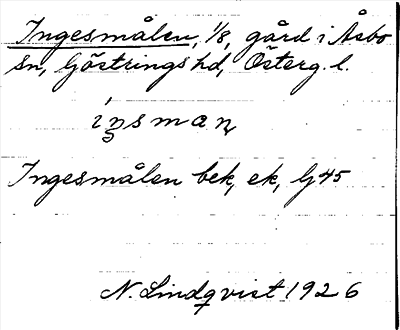 Ingesmålen, 1/8, gård i Åsbo
sn, Göstrings hd, Österg. l.
íŋsmaṇ
Ingesmålen bek, ek, Gj 45
N. Lindqvist 1926